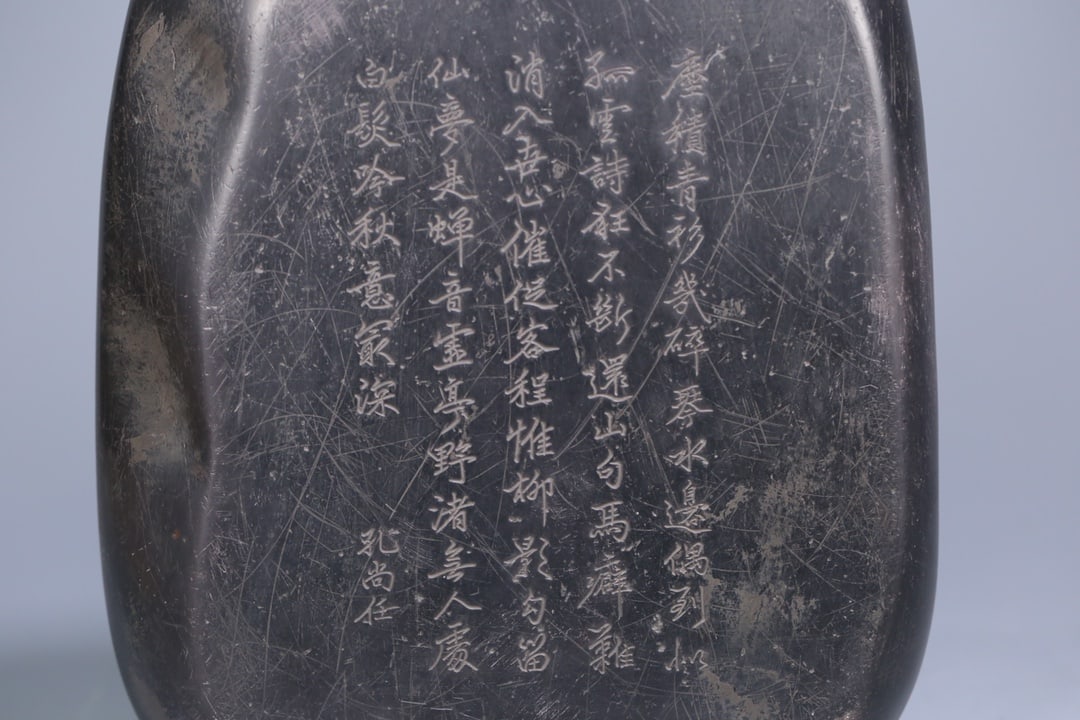 塵積青衫幾碎琴水邊偶到似
孤雲詩狂不斷還山句馬癖難
消入世心催促客程惟柳影勾留
仙夢是蟬音虛亭野渚無人處
白髮吟秋意最深
孔尚任